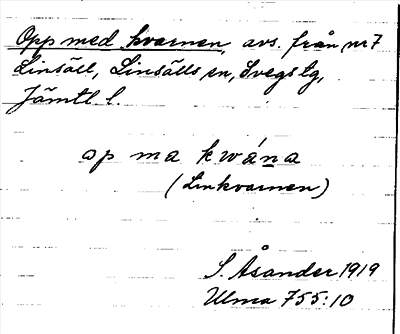 Opp med kvarnen, avs. från nr 7
Linsäll, Linsälls sn, Svegs tg,
Jämtl. l.
op ma kwána
(Linkvarnen)
S. Åsander 1919
Ulma 755:10